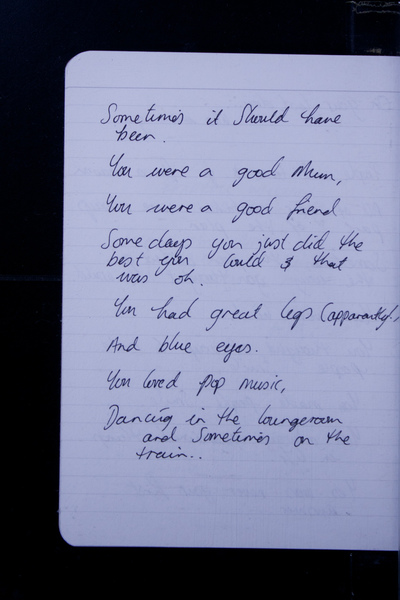 Sometimes it should have
been.
You were a good Mum,
You were a good friend
Some days you just did the
best you could & that
was ok.
You had great legs (apparently!,
And blue eyes.
You loved pop music,
Dancing in the loungeroom
and Sometimes on the
train..